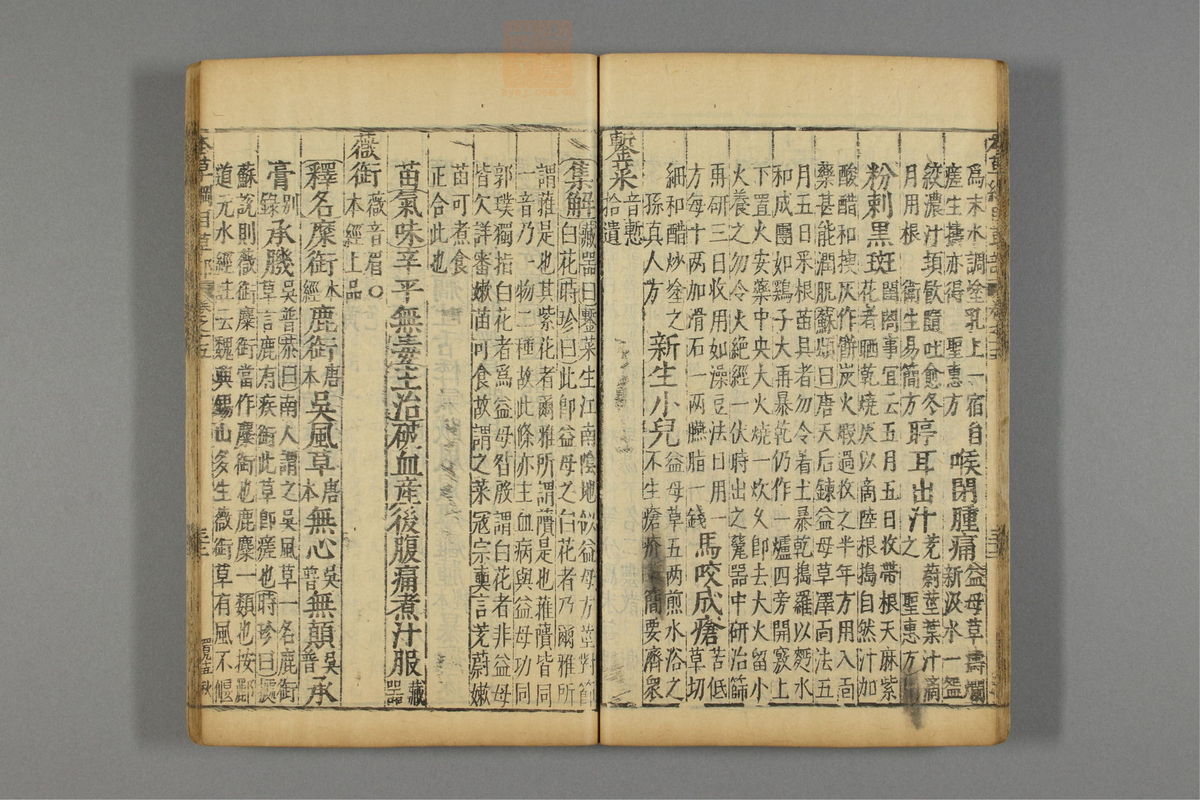 為末水調塗乳上一宿自
瘥生擣亦得聖惠方
喉閉腫痛
益母草擣爛
新汲水一盌
絞濃汁頓飲隨吐愈冬
月用根 衛生易簡方
聤耳出汁
茺蔚莖葉汁滴
之 聖惠方
粉刺黑斑
閨閣事宜云五月五日收帶根天麻紫
花者晒乾燒灰以商陸根搗自然汁加
酸醋和搜灰作餅炭火煅過收之半年方用入面
藥甚能潤肌蘇頌曰唐天后鍊益母草澤面法五
月五日采根苗具者勿令着土暴乾搗羅以麪水
和成團如鷄子大再暴乾仍作一爐四旁開竅上
下置火安藥中央大火燒一炊久即去大火留小
火養之勿令火絶經一伏時出之甆器中研治篩
再研三日收用如澡豆法日用一
方每十兩加滑石一兩臙脂一錢
馬咬成瘡
苦低
草切
細和醋炒塗之
孫真人方
新生小兒
益母草五兩煎水浴之
不生瘡疥 簡要濟衆
鏨菜
音慙
拾遺
集解
藏器曰鏨菜生江南陰地似益母方莖對節
白花時珍曰此即益母之白花者乃爾雅所
謂蓷是也其紫花者爾雅所謂䕲是也蓷䕲皆同
一音乃一物二種故此條亦主血病與益母功同
郭璞獨指白花者為益母昝殷謂白花者非益母
皆欠詳審嫩苗可食故謂之菜寇宗奭言茺蔚嫩
苗可煮食
正合此也
苗氣味辛平無毒主治破血產後腹痛煮汁服
藏
器
薇銜
薇音眉○
本經上品
釋名麋銜
本
經
鹿銜
唐
本
吳風草
唐
本
無心
吳
普
無顛
吳
普
承
膏
別
錄
承肌
吳普恭曰南人謂之吳風草一名鹿銜
草言鹿有疾銜此草即瘥也時珍曰據
蘇說則薇銜麋銜當作鹿銜也鹿麋一類也按酈
道元水經註云魏興錫山多生薇銜草有風不偃